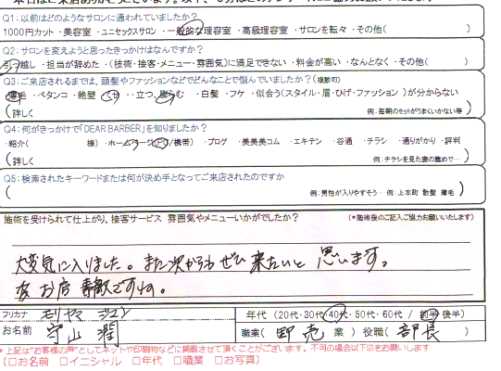 Q1:以前はどのようなサロンに通われていましたか?
1000円カット ・美容室 ・ユニセックスサロン ・一般的な理容室 ・高級理容室 ・サロンを転々 ・その他(　　)
Q2:サロンを変えようと思ったきっかけはなんですか?
引っ越し ・担当が辞めた ・(技術・接客・メニュー・雰囲気)に満足できない ・料金が高い ・なんとなく ・その他(　　)
Q3:ご来店されるまでは、頭髪やファッションなどでどんなことで悩んでいましたか?(複数可)
薄毛 ・ペタンコ ・絶壁 ・くせ ・立つ、膨らむ ・白髪 ・フケ ・似合う(スタイル・眉・ひげ・ファッション)が分からない
(詳しく　　例:毎朝のセットがうまくいかない等)
Q4:何がきっかけで「DEAR BARBER」を知りましたか?
・紹介(　　様) ・ホームページ(PC/携帯) ・ブログ ・美美美コム ・エキテン ・谷通 ・チラシ ・通りがかり ・評判
(詳しく　　例:チラシを見た妻の薦めで…)
Q5:検索されたキーワードまたは何が決め手となってご来店されたのですか
(　　例:男性が入りやすそう・例:上本町 散髪 薄毛)
施術を受けられて仕上がり、接客サービス 雰囲気やメニューいかがでしたか? (*施術後のご記入ご協力お願いいたします)
大変気に入りました。また次からもぜひ来たいと思います。
お店 素敵ですね。
フリカナ モリヤマ ジュン 年代 (20代・30代・40代・50代・60代 / 前半 後半)
お名前 守山 潤 職業( 卸売 業) 役職( 部長 )
*上記は"お客様の声"としてネットや印刷物などに掲載させて頂くことがございます。不可の場合は以下をお願いします
(□お名前 □イニシャル □年代 □職業 □お写真)